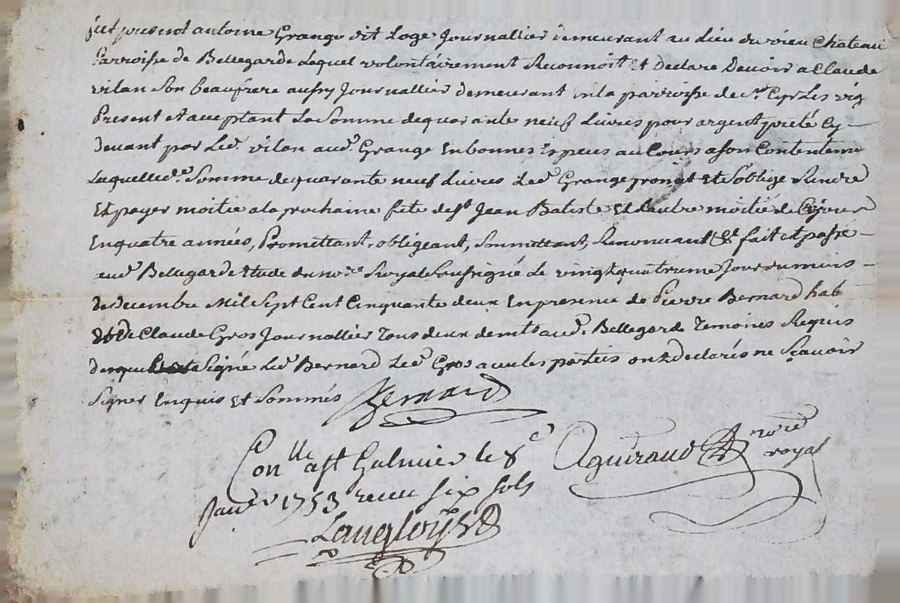 fut present antoine Grange dit Loge Journallier demeurant au lieu du vieu Chateau
Parroisse de Bellegarde Lequel volontairement Reconnoit et Declare Devoir a Claude
vilan Son beaufrere aussy Journallier demeurant en la parroisse de St Cyr Les vig
Present et acceptant La Somme de quarante neuf Livres pour argent preté Cy
devant par Led. vilan aud. Grange En bonnes Especes au Cours a son Contentemt
Laquelle de. Somme de quarante neuf Livres Led. Grange promet et S'oblige Rendre
Et payer moitié a la prochaine fete de St. Jean Batiste et L'autre moitié de
En quatre années, Promettant, obligeant, Soumettant, Renonceant &c fait et passé
aud. Bellegarde Etude du nore. Royal Soussigné Le vingt quatrieme Jour du mois
de decembre Mil Sept Cent Cinquante deux En presence de Pierre Bernard hab
et de Claude Gros Journallier Tous deux demts aud. Bellegarde Temoins Requis
Signé Led. Bernard Led. Gros avec les parties ont Declarés ne Sçavoir
Signer Enquis et Sommés Bernard
Conlle a St Galmier le 8e Aguiraud nore
Janer 1753 receu six sols royal
Langloys